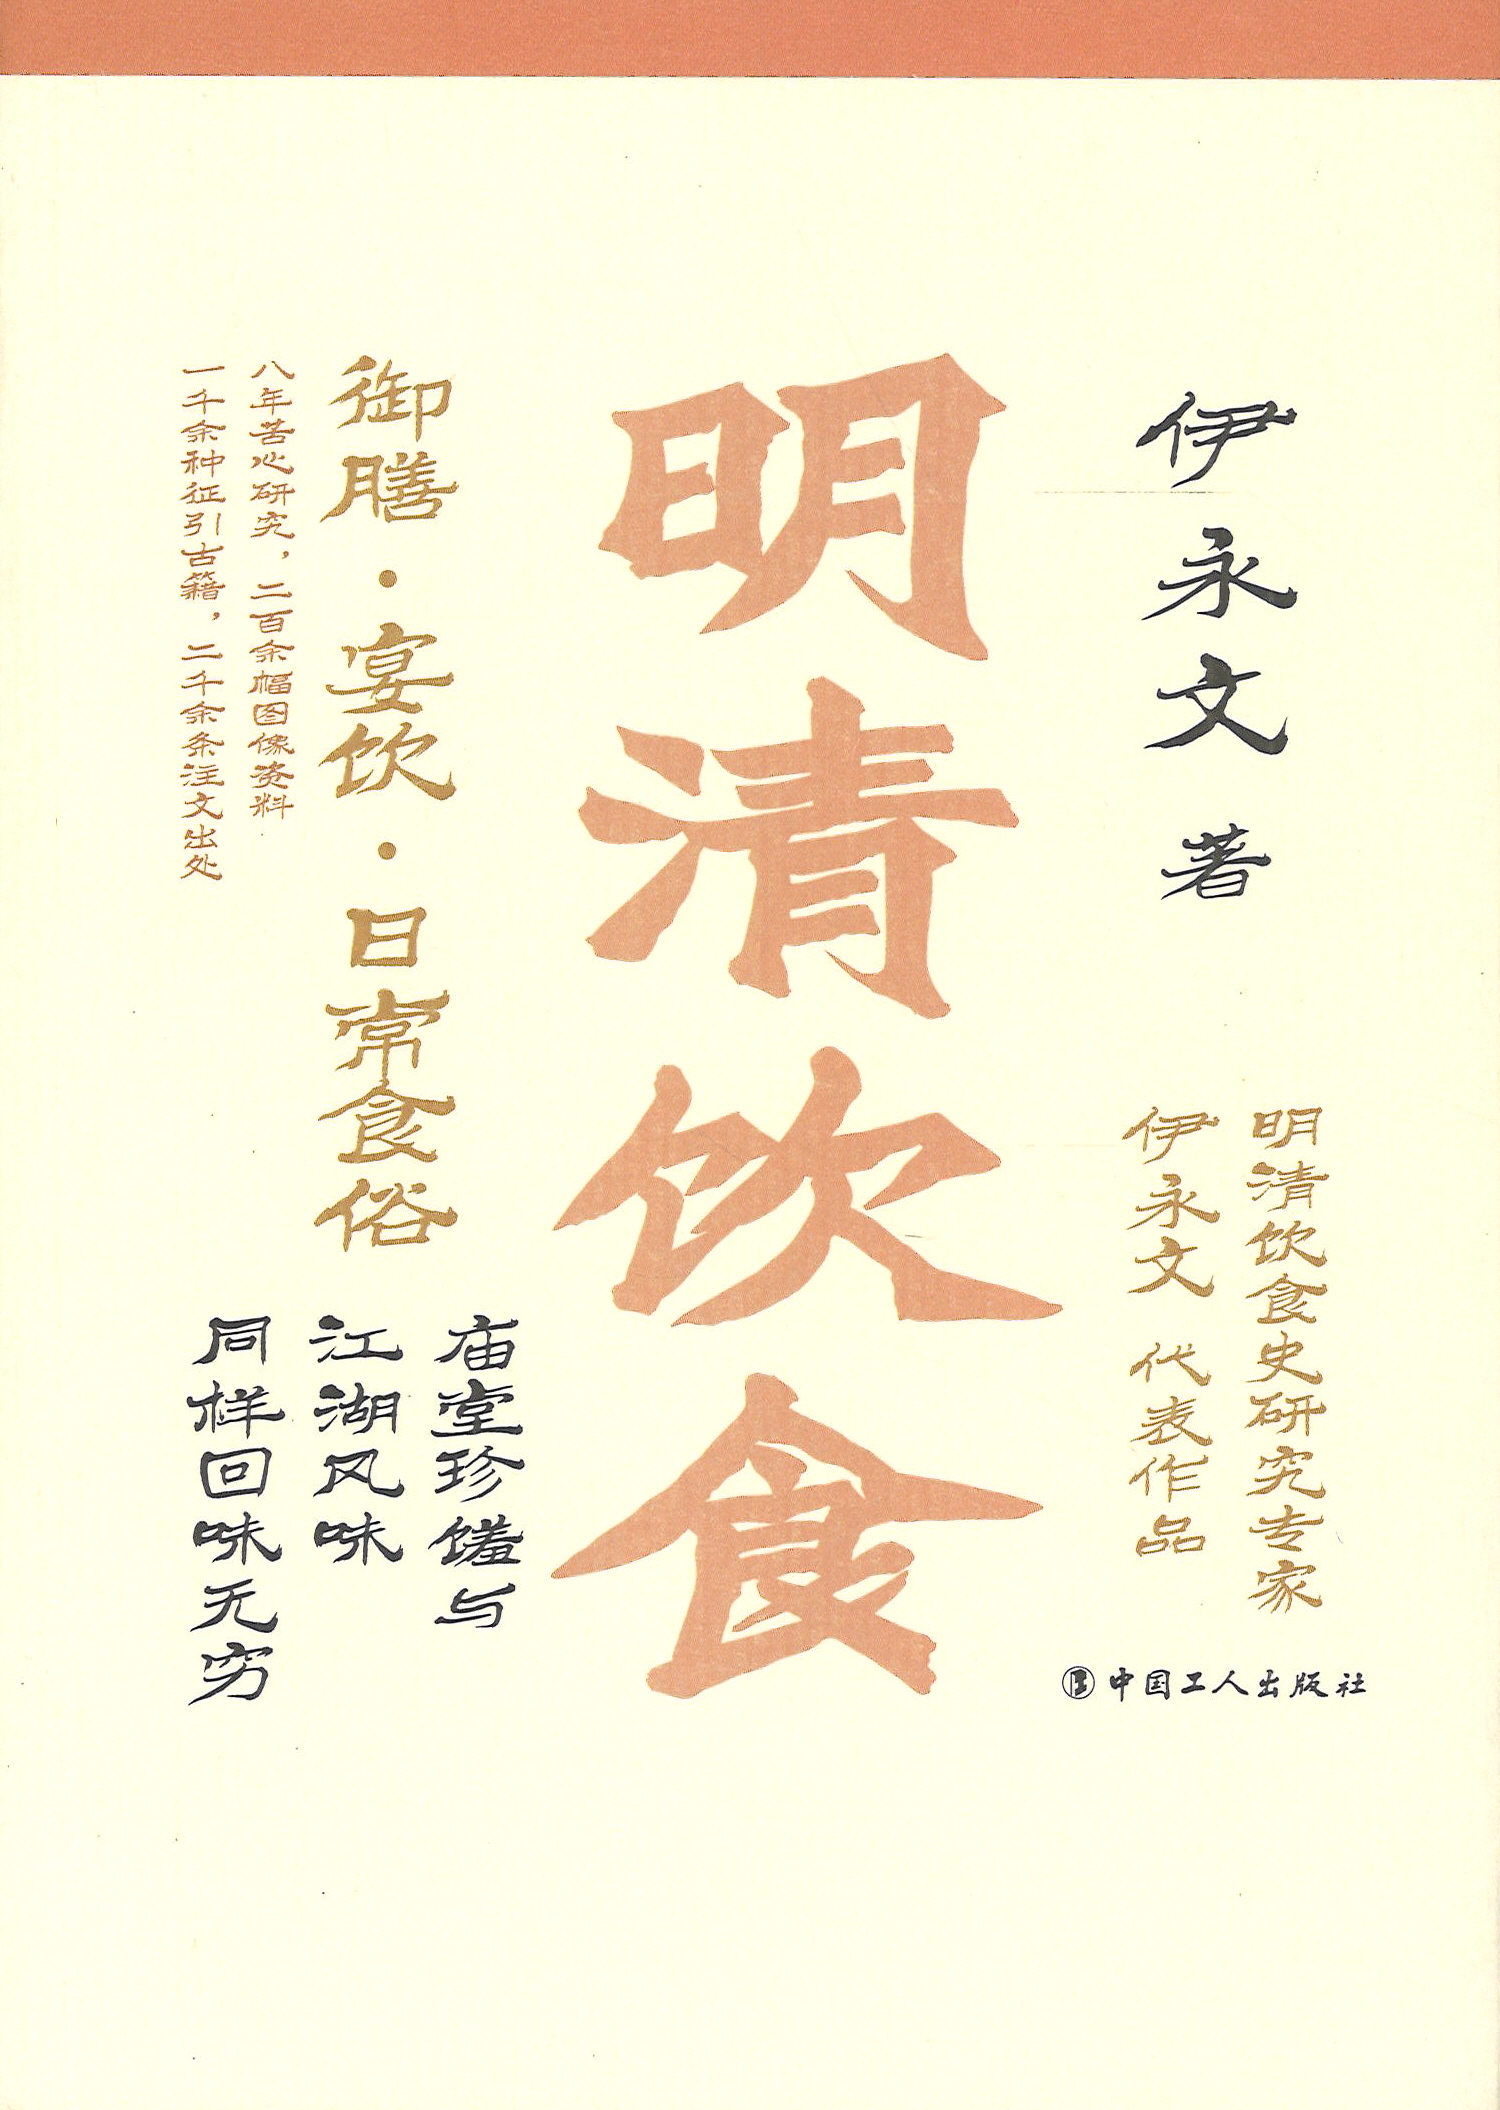 伊永文 著
明清饮食史研究专家
伊永文 代表作品
中国工人出版社
明清饮食
御膳·宴饮·日常食俗
八年苦心研究，二百余幅图像资料
一千余种征引古籍，二千余条注文出处
庙堂珍馐与
江湖风味
同样回味无穷